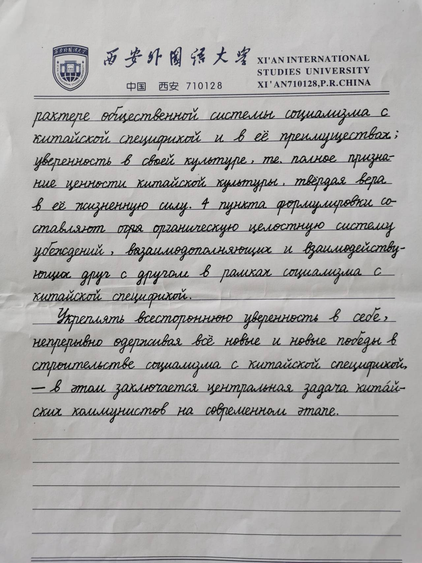 西安外国语大学
XI'AN INTERNATIONAL
STUDIES UNIVERSITY
中国 西安 710128
XI'AN710128,P.R.CHINA
рактере общественной системы социализма с
китайской спецификой и в её преимуществах;
уверенность в своей культуре, те. полное призна-
ние ценности китайской культуры, твёрдая вера
в её жизненную силу. 4 пункта формулировки со-
ставляют органическую целостную систему
убеждений, взаимодополняющих и взаимодейству-
ющих друг с другом в рамках социализма с
китайской спецификой.
Укреплять всестороннюю уверенность в себе,
непрерывно одерживая всё новые и новые победы в
строительстве социализма с китайской спецификой,
— в этом заключается центральная задача китай-
ских коммунистов на современном этапе.